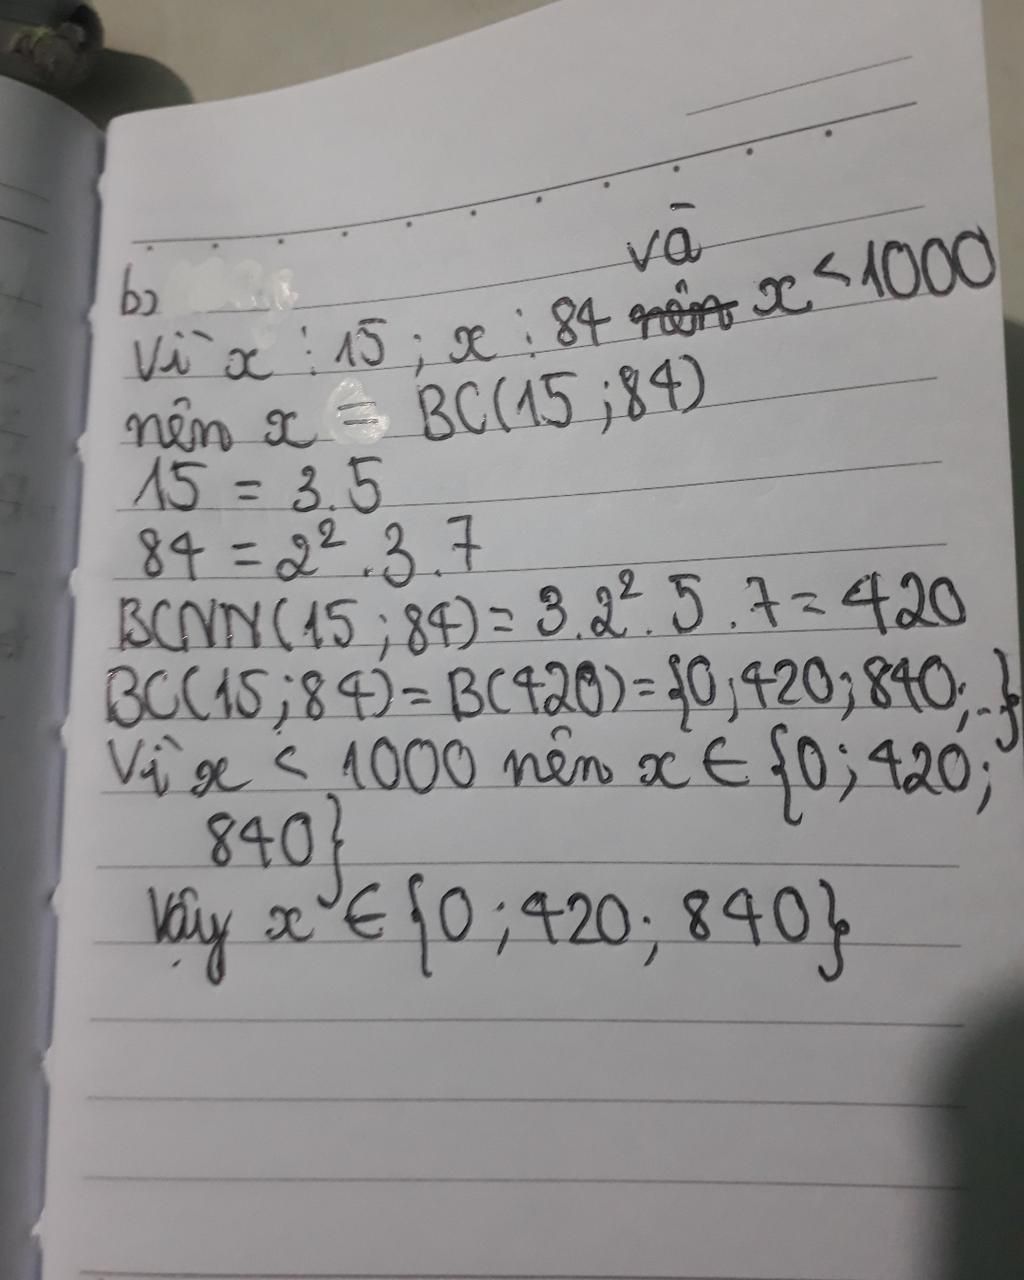 b)
và
Vì x ⋮ 15 ; x ⋮ 84 nên x < 1000
nên x = BC(15 ; 84)
15 = 3.5
84 = 2² . 3 . 7
BCNN(15 ; 84) = 3.2² . 5 . 7 = 420
BC(15 ; 84) = B(420) = {0 ; 420 ; 840 ; ...}
Vì x < 1000 nên x ∈ {0 ; 420 ;
840}
Vậy x ∈ {0 ; 420 ; 840}